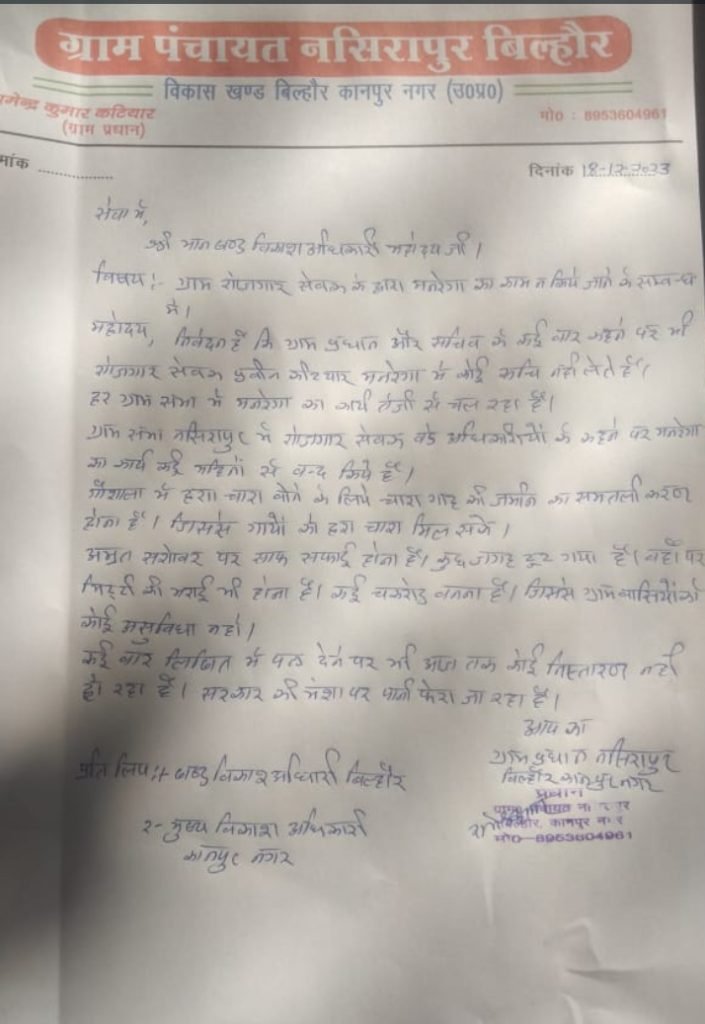 ग्राम पंचायत नसिरापुर बिल्हौर
विकास खण्ड बिल्हौर कानपुर नगर (उ०प्र०)
गमेन्द्र कुमार कटियार
(ग्राम प्रधान)
मो० : 8953604961
मांक ..............
दिनांक 18-12-2023
सेवा में,
श्री मान खण्ड विकाश अधिकारी महोदय जी।
विषय:- ग्राम रोजगार सेवक के द्वारा मनरेगा का काम न किये जाने के सम्बन्ध
में।
महोदय, निवेदन है कि ग्राम प्रधान और सचिव के कई बार कहने पर भी
रोजगार सेवक प्रवीन कटियार मनरेगा में कोई रूचि नही लेते हैं।
हर ग्राम सभा में मनरेगा का कार्य तेजी से चल रहा है।
ग्राम सभा नसिरापुर में रोजगार सेवक बडे अधिकारियों के कहने पर मनरेगा
का कार्य कई महिनों से बन्द किये हैं।
गौशाला में हरा चारा बोने के लिये चारा गाह की जमीन का समतली करण
होना है। जिससे गायों को हरा चारा मिल सके।
अमृत सरोवर पर साफ सफाई होना है। कुछ जगह टूट गया है। वहाँ पर
मिट्टी की भराई भी होना है। कई चकरोड बनना है। जिससे ग्राम वासियों को
कोई असुविधा न हो।
कई बार लिखित में पत्र देने पर भी आज तक कोई निस्तारण नही
हो रहा है। सरकार की मंशा पर पानी फेरा जा रहा है।
आप का
ग्राम प्रधान नसिरापुर
बिल्हौर कानपुर नगर
प्रति लिपि:- खण्ड विकाश अधिकारी बिल्हौर
प्रधान
बिल्हौर, कानपुर
मो०-8953604961
२- मुख्य विकाश अधिकारी
कानपुर नगर